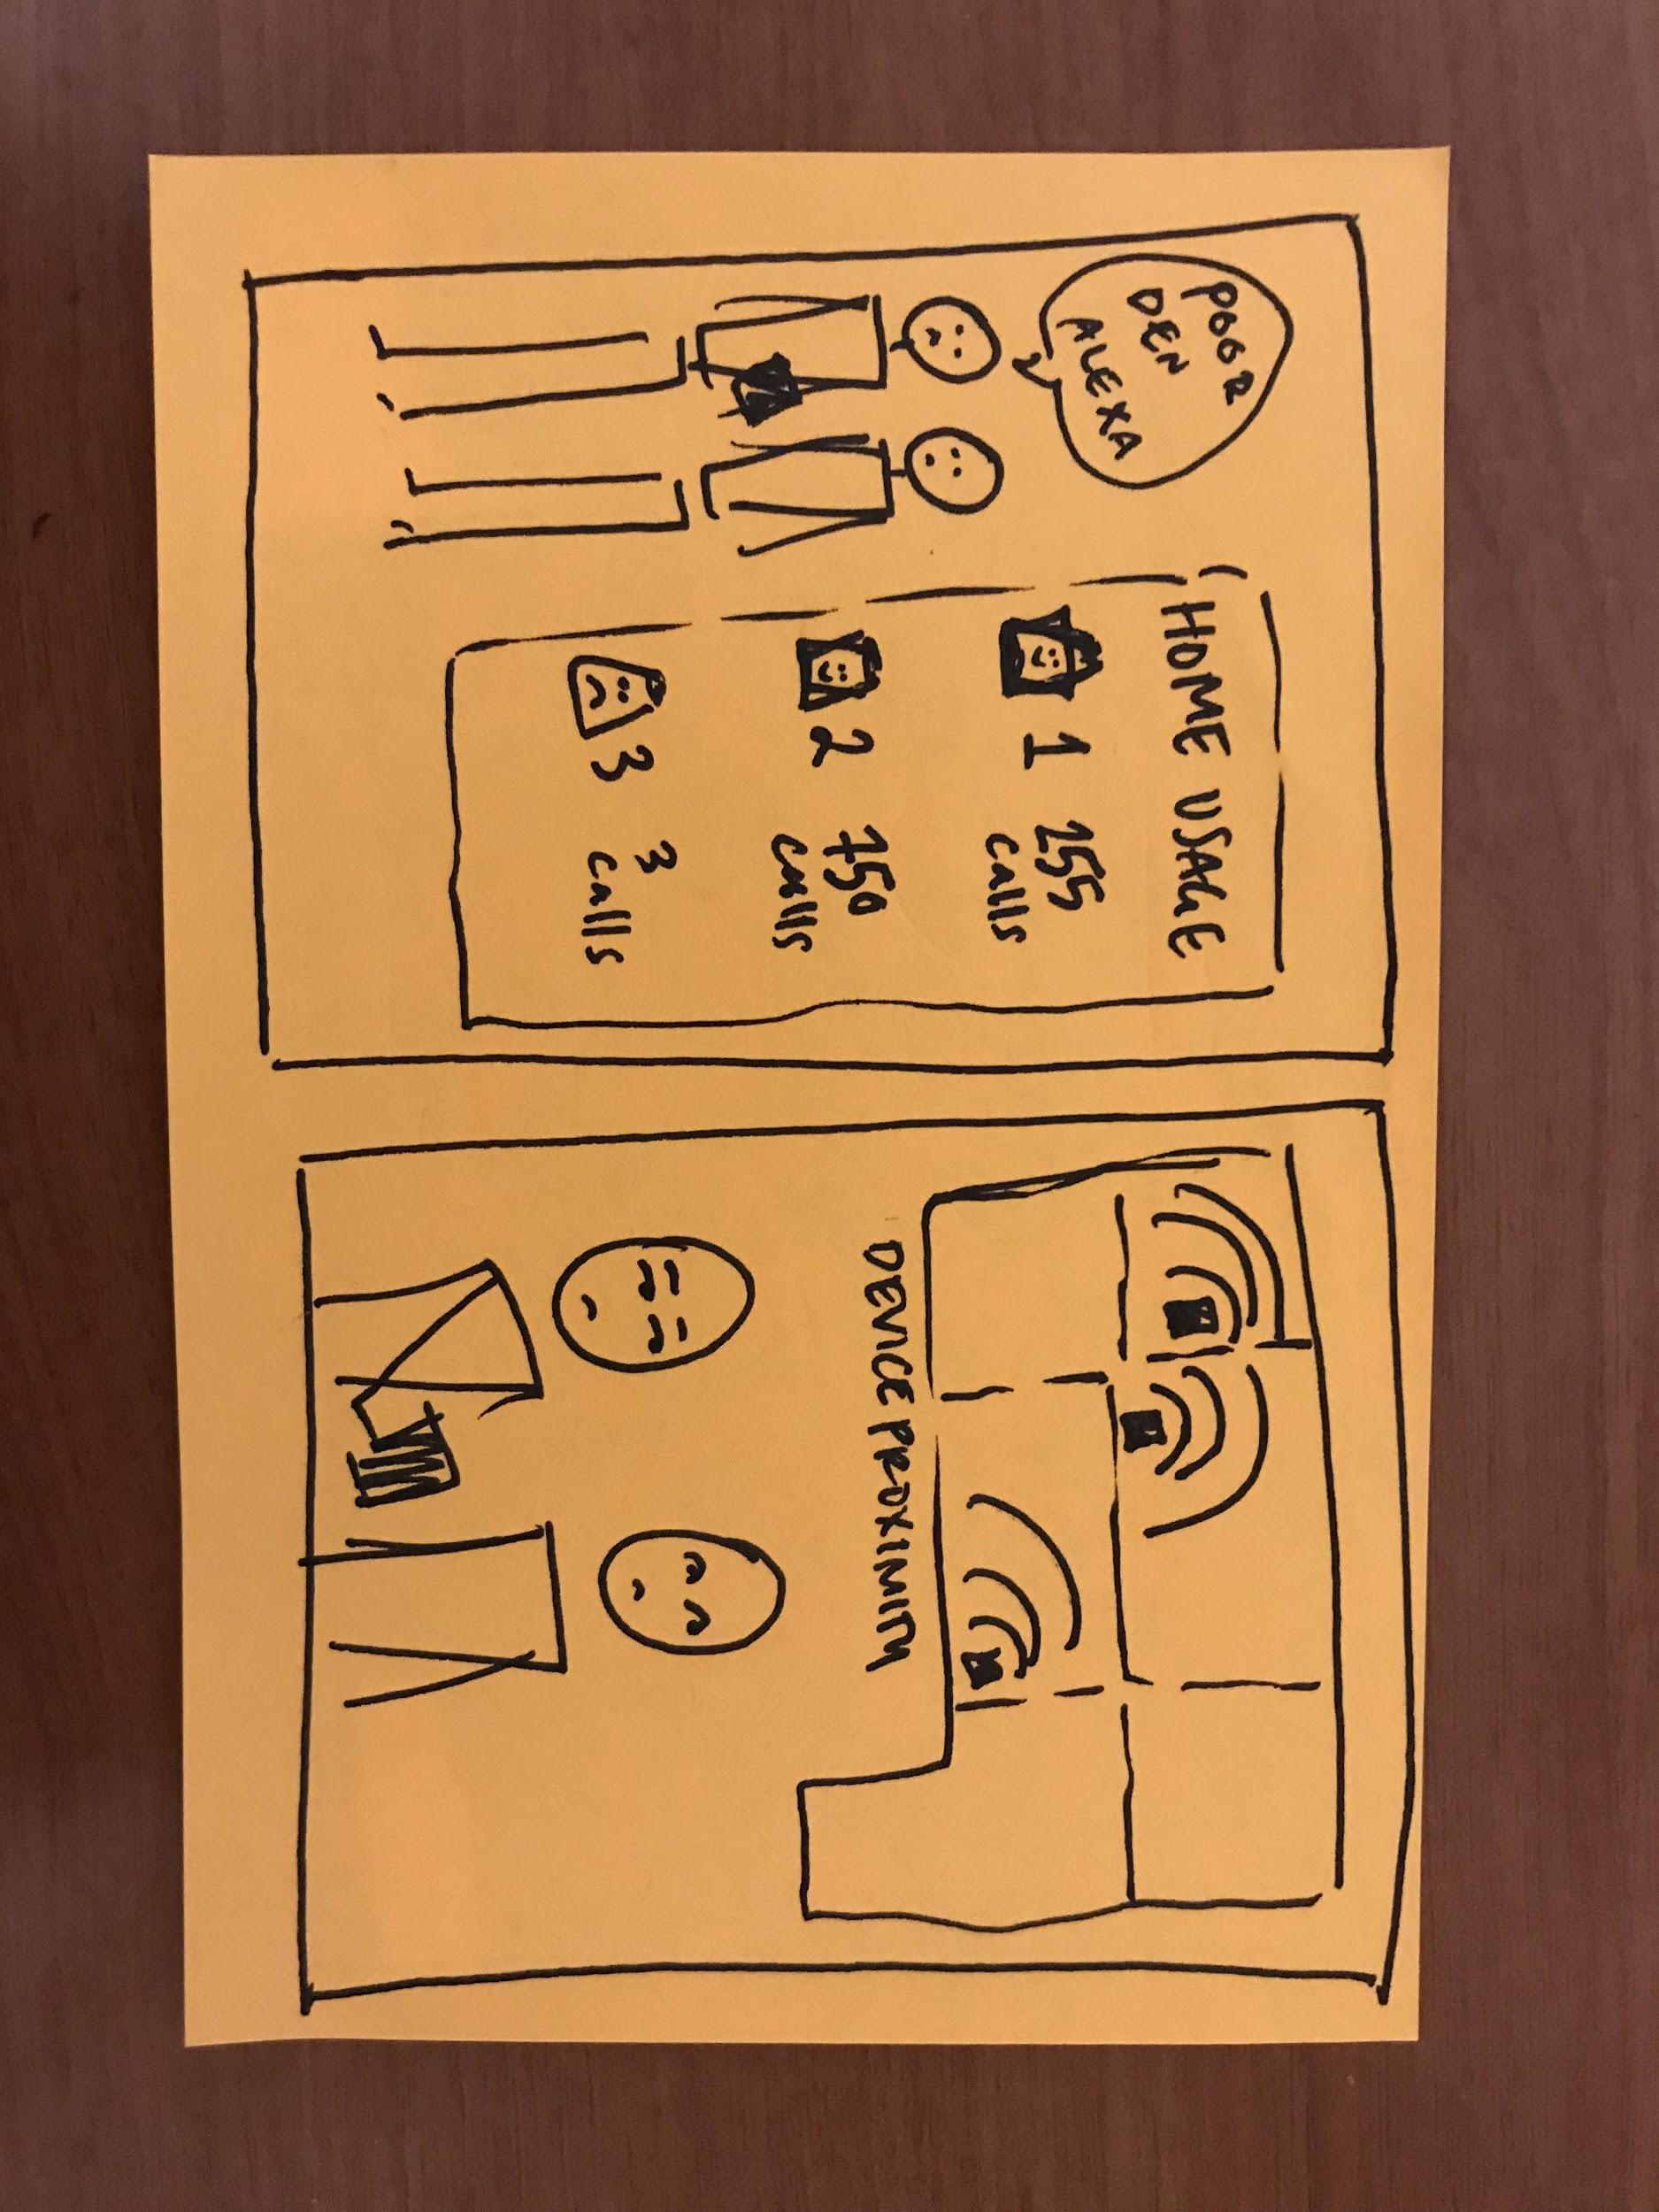 POOR
DEN
ALEXA
HOME USAGE
1 255
calls
2 750
calls
3 3
calls
DEVICE PROXIMITY